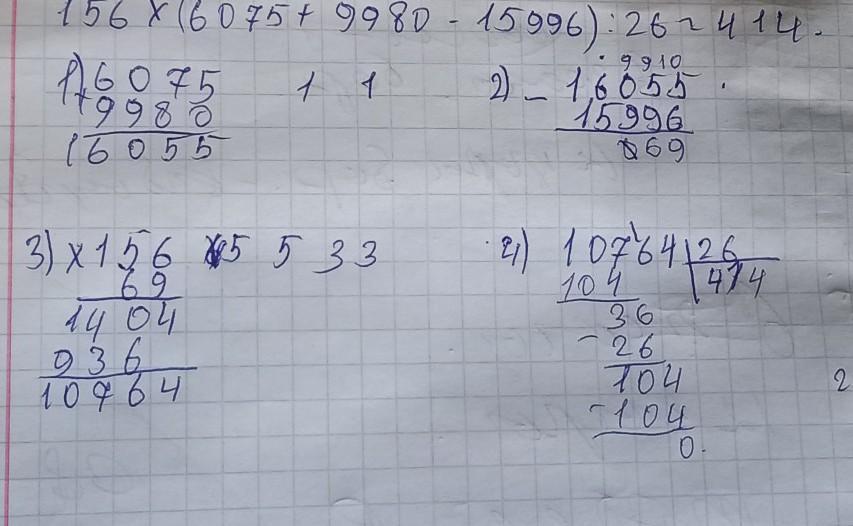 156 × (6075 + 9980 - 15996) : 26 = 414.
1) 6075 1 1
+ 9980
16055
2) - 16055
9910
15996
69
3) × 156 5 5 3 3
69
1404
936
10764
4) 10764 | 26
104 | 414
36
- 26
104
- 104
0.
2